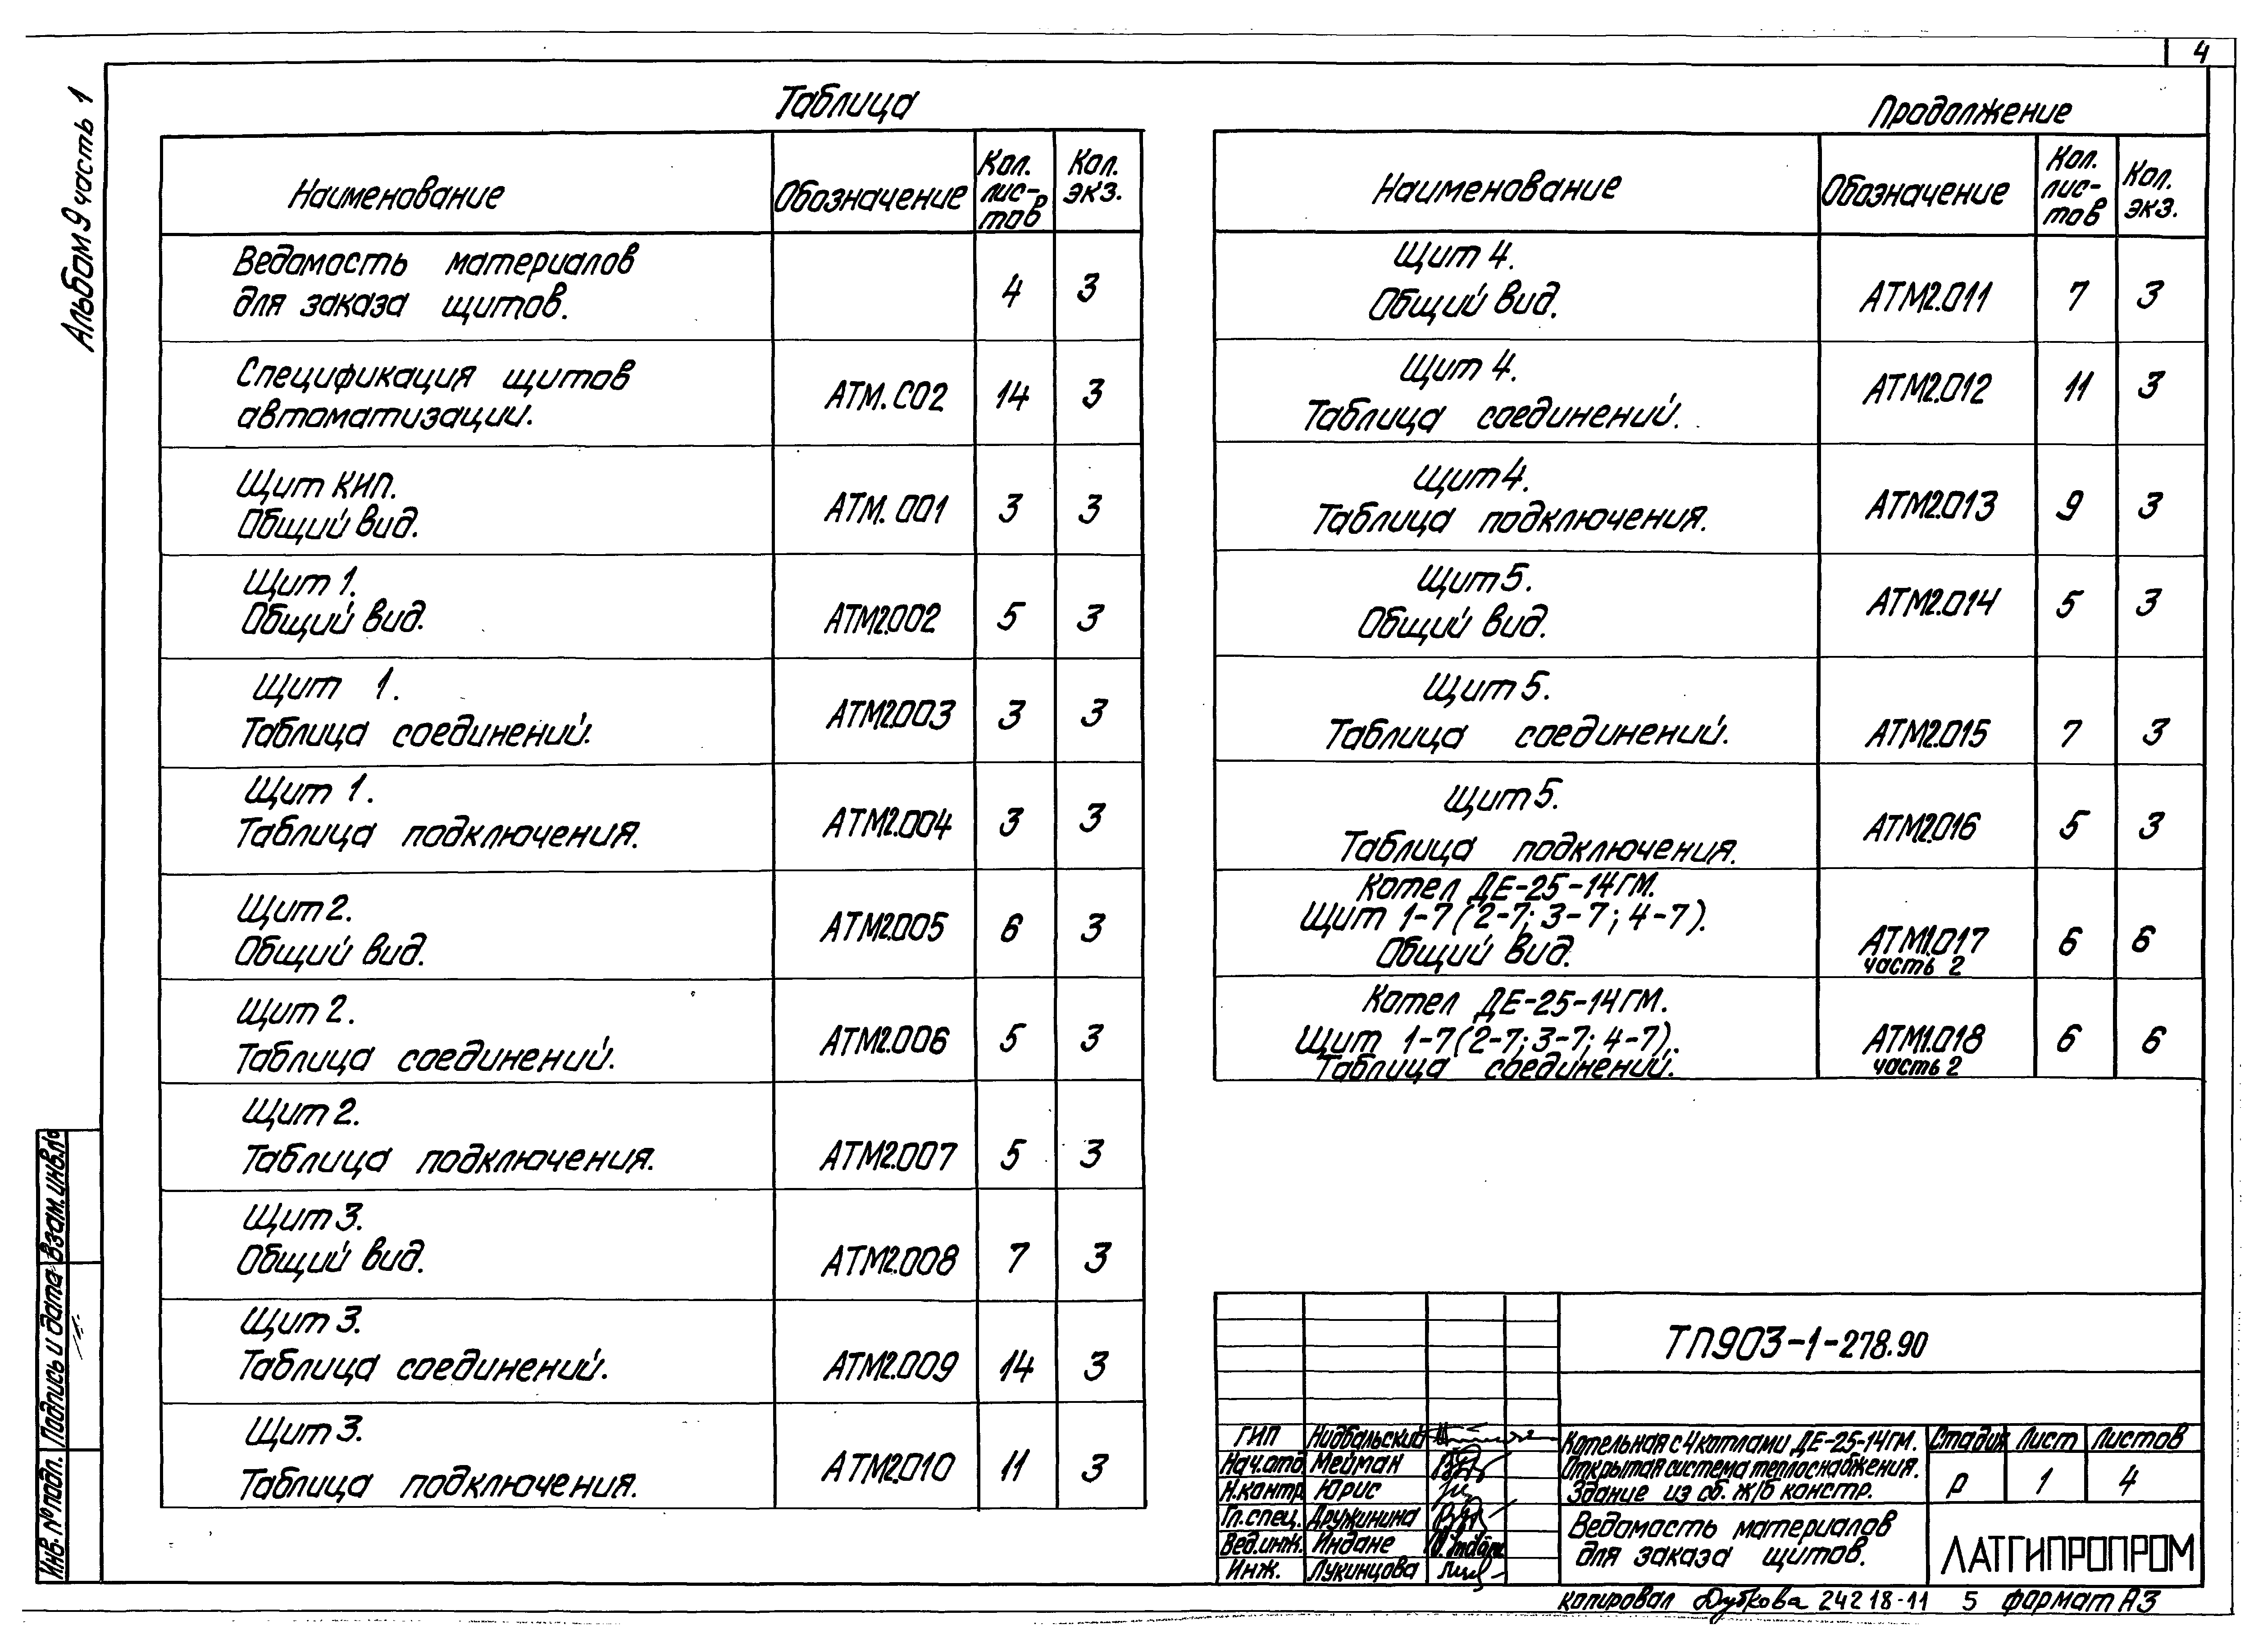 4
Альбом 9 часть 1
Таблица
Наименование
Обозначение
Кол. лис- тов
Кол. экз.
Ведомость материалов
для заказа щитов.
4 3
Спецификация щитов
автоматизации.
АТМ.С02 14 3
Щит КИП.
Общий вид.
АТМ.001 3 3
Щит 1.
Общий вид.
АТМ2.002 5 3
Щит 1.
Таблица соединений.
АТМ2.003 3 3
Щит 1.
Таблица подключения.
АТМ2.004 3 3
Щит 2.
Общий вид.
АТМ2.005 6 3
Щит 2.
Таблица соединений.
АТМ2.006 5 3
Щит 2.
Таблица подключения.
АТМ2.007 5 3
Щит 3.
Общий вид.
АТМ2.008 7 3
Щит 3.
Таблица соединений.
АТМ2.009 14 3
Щит 3.
Таблица подключения.
АТМ2.010 11 3
Продолжение
Наименование
Обозначение
Кол. лис- тов
Кол. экз.
Щит 4.
Общий вид.
АТМ2.011 7 3
Щит 4.
Таблица соединений.
АТМ2.012 11 3
Щит 4.
Таблица подключения.
АТМ2.013 9 3
Щит 5.
Общий вид.
АТМ2.014 5 3
Щит 5.
Таблица соединений.
АТМ2.015 7 3
Щит 5.
Таблица подключения.
АТМ2.016 5 3
Котел ДЕ-25-14ГМ.
Щит 1-7 (2-7; 3-7; 4-7).
Общий вид.
АТМ1.017
часть 2
6 6
Котел ДЕ-25-14ГМ.
Щит 1-7 (2-7; 3-7; 4-7).
Таблица соединений.
АТМ1.018
часть 2
6 6
ТП903-1-278.90
ГИП Нидбальский
Нач.отд Мейман
Н.контр Юрис
Гл.спец. Дружинина
Вед.инж. Индане
Инж. Лукинцова
Котельная с 4 котлами ДЕ-25-14ГМ.
Открытая система теплоснабжения.
Здание из сб. ж/б констр.
Стадия Лист Листов
Р 1 4
Ведомость материалов
для заказа щитов.
ЛАТГИПРОПРОМ
Инв. № подл. Подпись и дата Взам. инв. №
копировал Дубкова 24218-11 5 формат А3